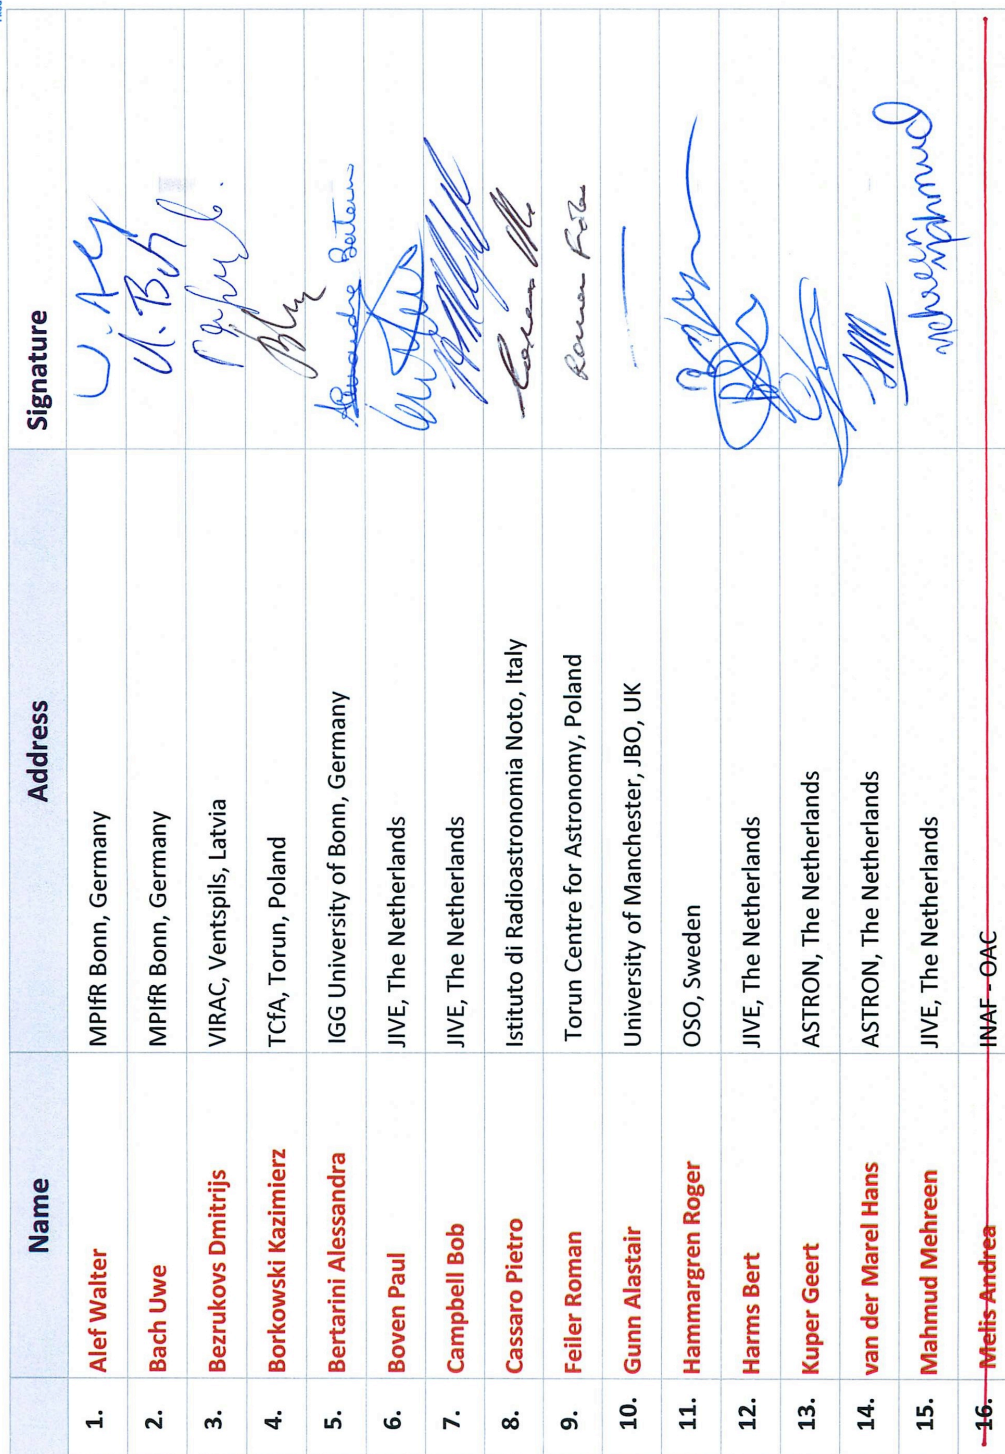 Name Address Signature
1. Alef Walter MPIfR Bonn, Germany
2. Bach Uwe MPIfR Bonn, Germany U. Bach
3. Bezrukovs Dmitrijs VIRAC, Ventspils, Latvia
4. Borkowski Kazimierz TCfA, Torun, Poland
5. Bertarini Alessandra IGG University of Bonn, Germany Alessandra Bertarini
6. Boven Paul JIVE, The Netherlands
7. Campbell Bob JIVE, The Netherlands
8. Cassaro Pietro Istituto di Radioastronomia Noto, Italy
9. Feiler Roman Torun Centre for Astronomy, Poland
10. Gunn Alastair University of Manchester, JBO, UK
11. Hammargren Roger OSO, Sweden
12. Harms Bert JIVE, The Netherlands
13. Kuper Geert ASTRON, The Netherlands
14. van der Marel Hans ASTRON, The Netherlands
15. Mahmud Mehreen JIVE, The Netherlands Mehreen Mahmud
16. Melis Andrea INAF - OAC